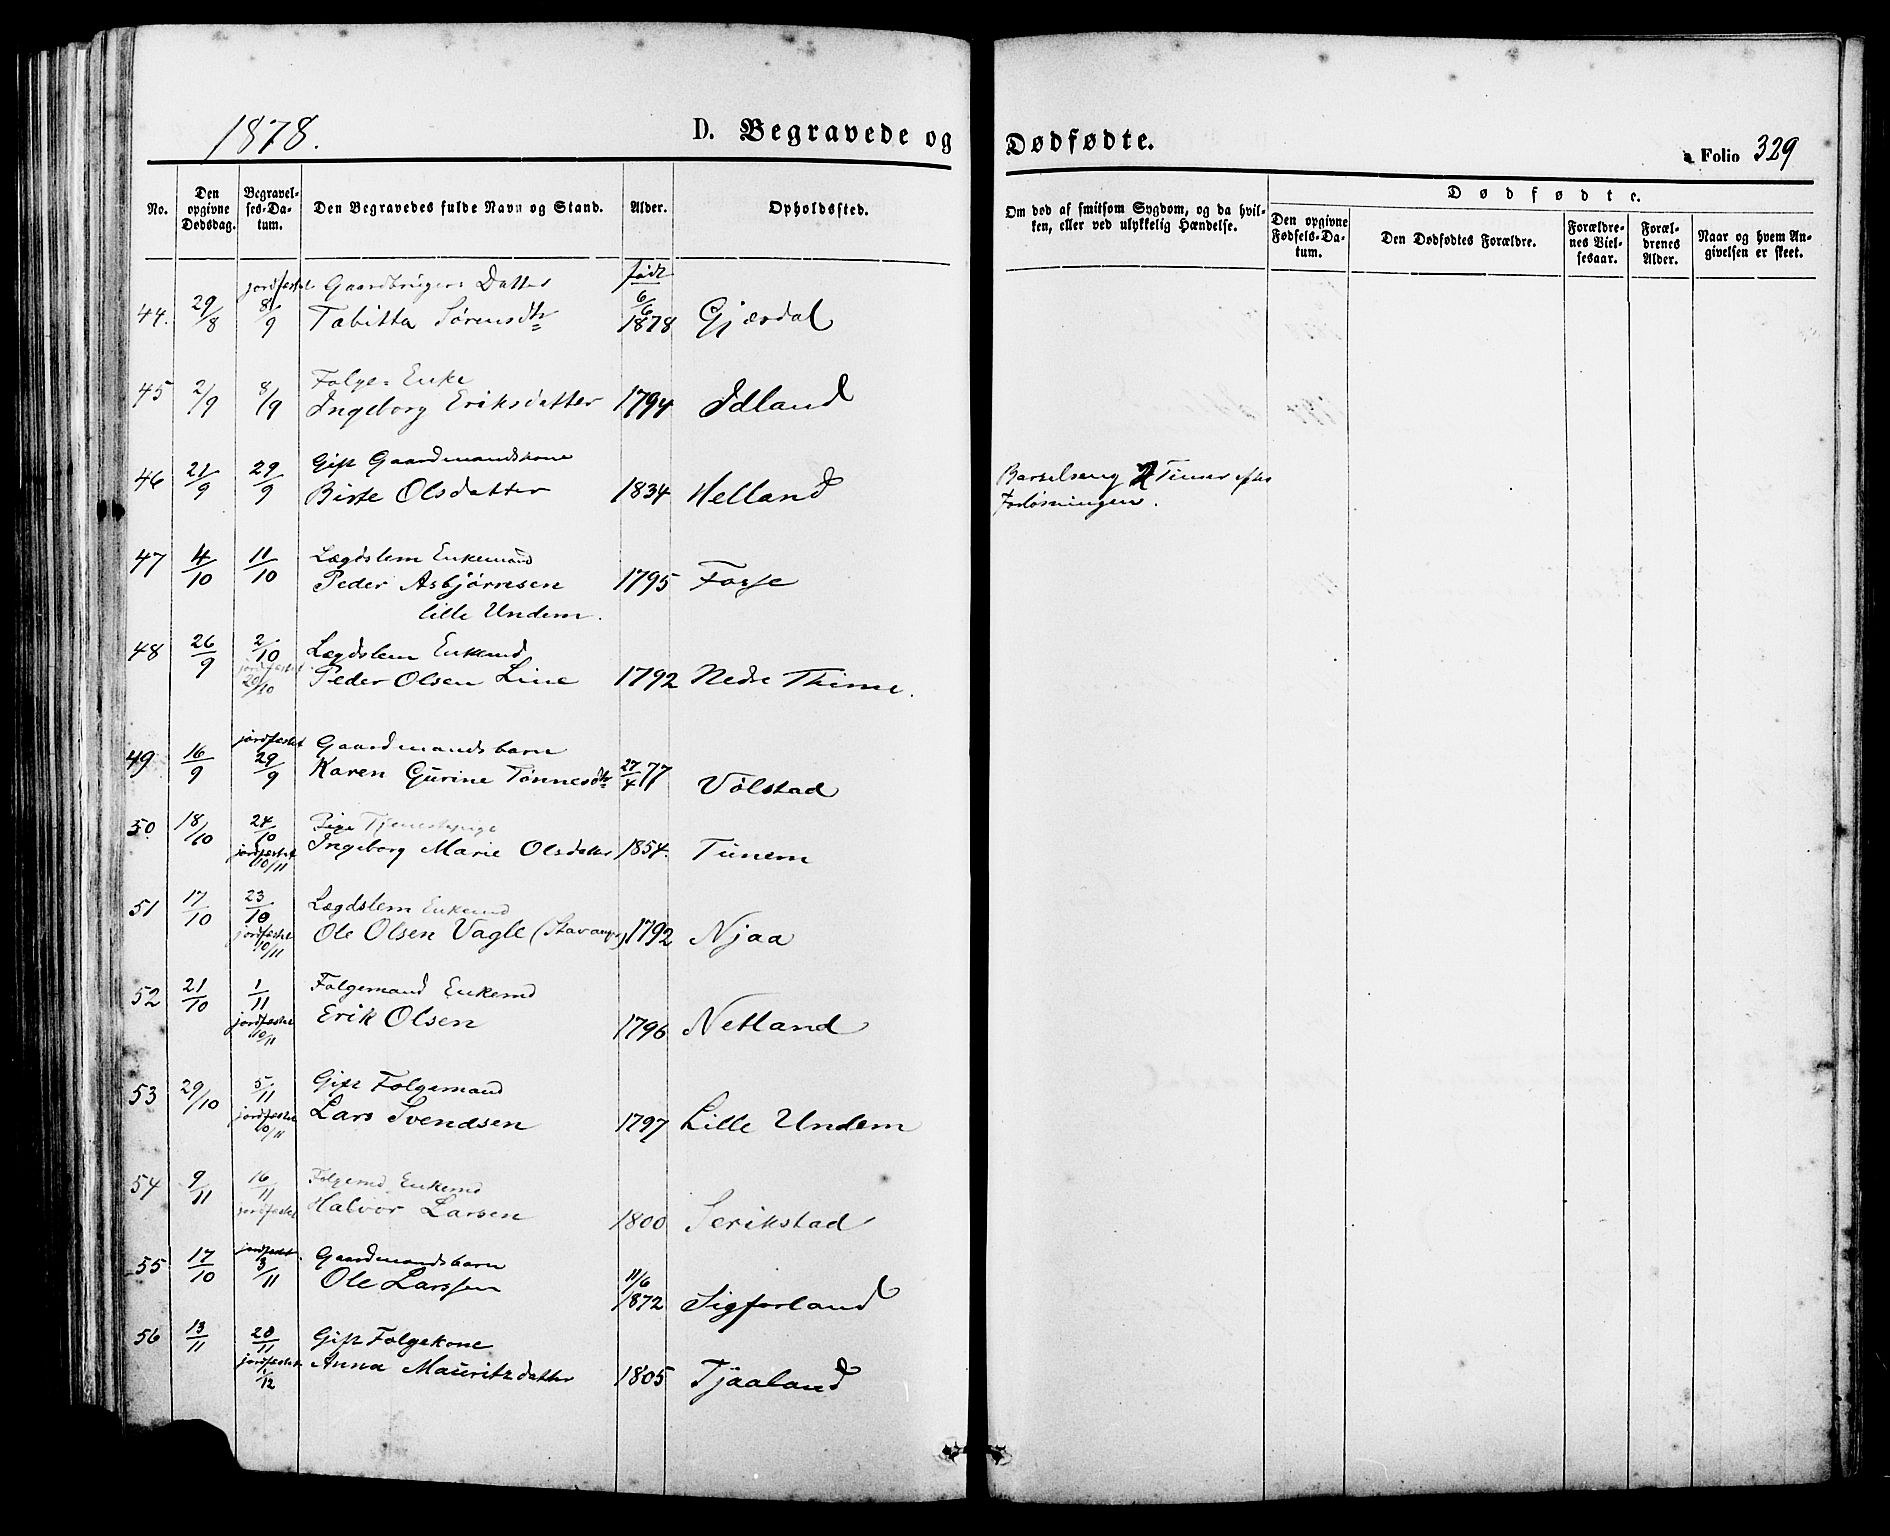 1878.
D. Begravede og
Dødfødte.
a Folio 329
No.
Den opgivne Dødsdag.
Begravelses-Datum.
Den Begravedes fulde Navn og Stand.
Alder.
Opholdssted.
Om død af smitsom Sygdom, og da hvilken, eller ved ulykkelig Hændelse.
Dødfødte.
Den opgivne Fødsels-Datum.
Den Dødfødtes Forældre.
Forældrenes Vielsesaar.
Forældrenes Alder.
Naar og hvem Angivelsen er skeet.
jordfæstet Gaardbrugers Datter født
44. 29/8 8/9 Tabitta Sørensdtr 6/6 1878 Gjæsdal
Folge Enke
45 2/9 8/9 Ingeborg Eriksdatter 1794 Idland
Gift Gaardmandskone
46 21/9 29/9 Birte Olsdatter 1834 Helland Barselseng 2 Timer efter
Forløsningen.
Lægdslem Enkemand
47 4/10 11/10 Peder Asbjørnsen 1795 Fosse
lille Undem.
Lægdslem Enkemd
48 26/9 2/10 jordfæstet 20/10 Peder Olsen Line 1792 Nedre Thime.
jordfæstet Gaardmandsbarn
49 16/9 29/9 Karen Gurine Tønnesdtr 27/4 77 Vølstad
Pige Tjenestepige
50. 18/10 24/10 jordfæstet 10/11 Ingeborg Marie Olsdatter 1854. Tunem
Lægdslem Enkemd
51 17/10 23/10 jordfæstet 10/11 Ole Olsen Vagle (Stavanger) 1792 Njaa
Folgemand Enkemd
52 21/10 1/11 jordfæstet 10/11 Erik Olsen 1796 Netland
Gift Folgemand
53 29/10 5/11 jordfæstet 10/11 Lars Svendsen 1797 Lille Undem
Folgemd Enkemd
54 9/11 16/11 jordfæstet Halvor Larsen 1800 Serikstad
jordfæstet Gaardmandsbarn
55 17/10 3/11 Ole Larssen 11/6 1872 Sigforland
Gift Folgekone
56 13/11 20/11 jordfæstet 1/12 Anna Mauritzdatter 1805 Tjaaland